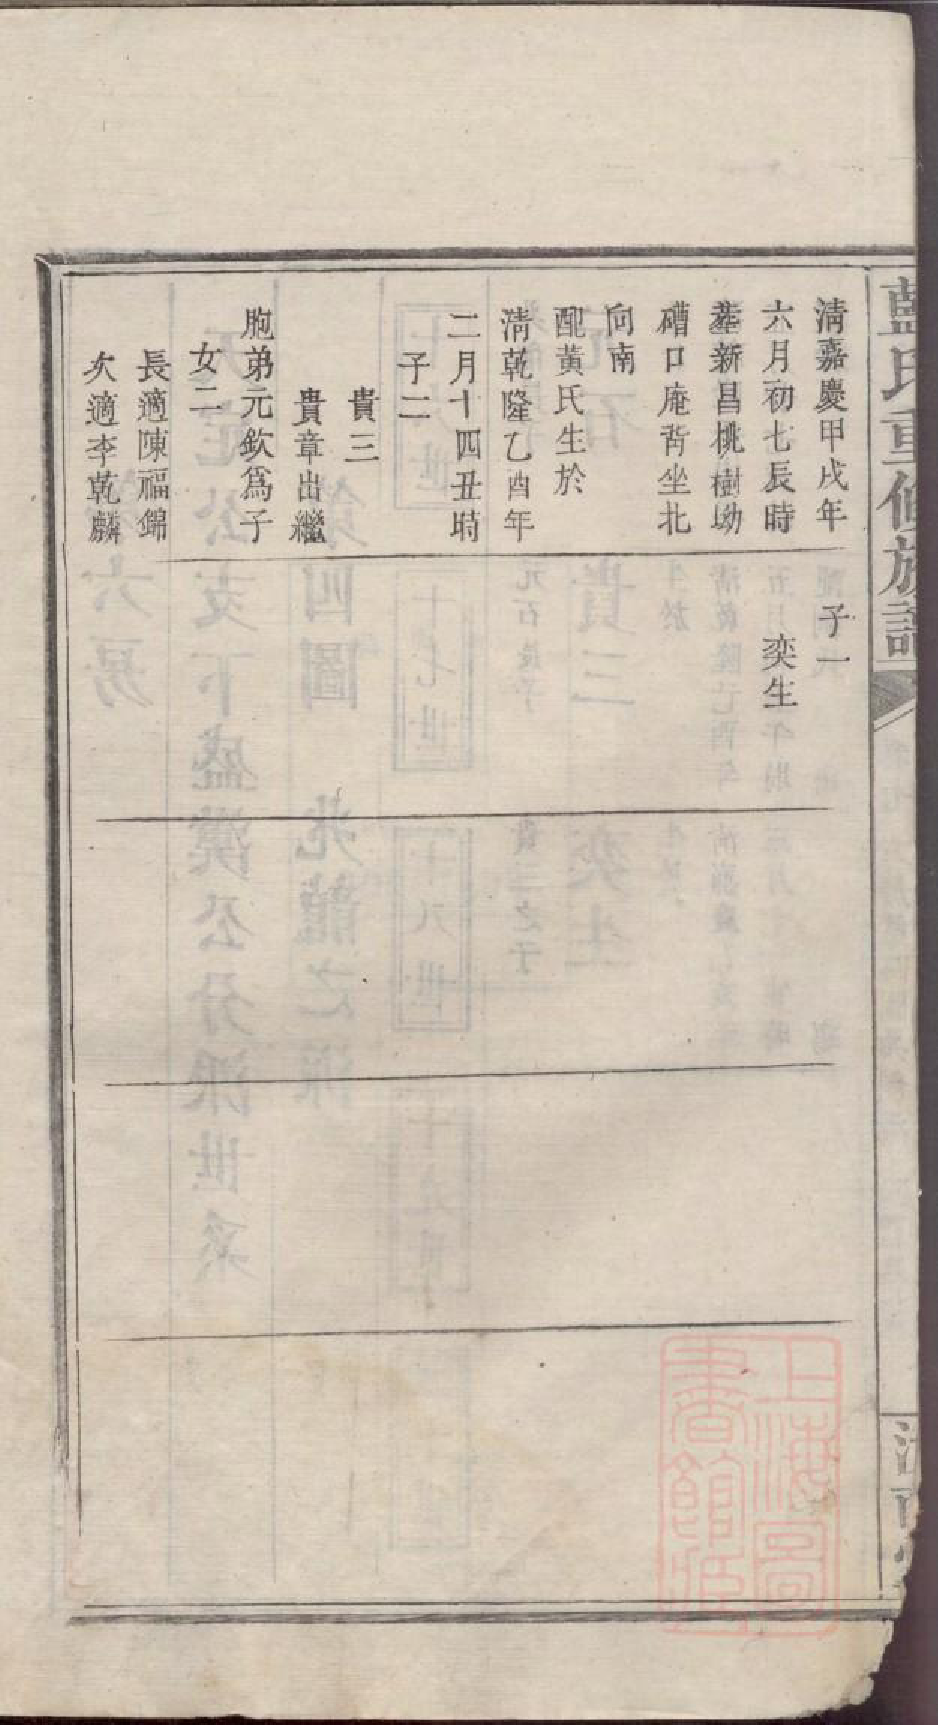 藍氏重修族譜
清嘉慶甲戌年
六月初七辰時
塟新昌桃樹坳
磄口庵背坐北
向南
配黃氏生於
淸乾隆乙酉年
二月十四丑時
子二
貴三
貴章出繼
胞弟元欽爲子
女二
長適陳福錦
次適李乾麟
子一
奕生
上海圖
書館藏